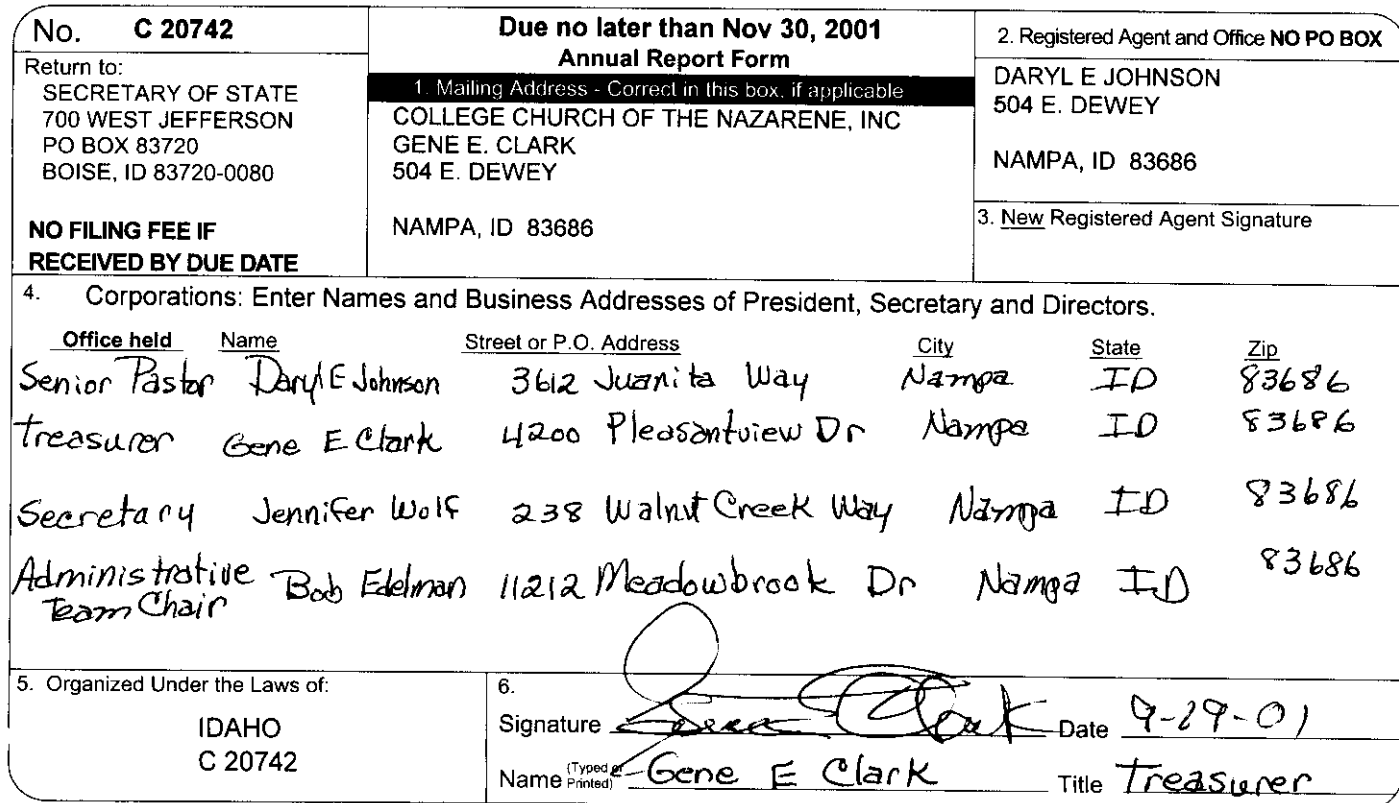 No. C 20742
Return to:
SECRETARY OF STATE
700 WEST JEFFERSON
PO BOX 83720
BOISE, ID 83720-0080
NO FILING FEE IF
RECEIVED BY DUE DATE
Due no later than Nov 30, 2001
Annual Report Form
1. Mailing Address - Correct in this box, if applicable
COLLEGE CHURCH OF THE NAZARENE, INC
GENE E. CLARK
504 E. DEWEY
NAMPA, ID 83686
2. Registered Agent and Office NO PO BOX
DARYL E JOHNSON
504 E. DEWEY
NAMPA, ID 83686
3. New Registered Agent Signature
4. Corporations: Enter Names and Business Addresses of President, Secretary and Directors.
Office held Name Street or P.O. Address City State Zip
Senior Pastor Daryl E Johnson 3612 Juanita Way Nampa ID 83686
Treasurer Gene E Clark 4200 Pleasantview Dr Nampa ID 83686
Secretary Jennifer Wolf 238 Walnut Creek Way Nampa ID 83686
Administrative Bob Edelman 11212 Meadowbrook Dr Nampa ID 83686
Team Chair
5. Organized Under the Laws of:
IDAHO
C 20742
6.
Signature Gene E Clark Date 9-29-01
Name (Typed or Printed) Gene E Clark Title Treasurer